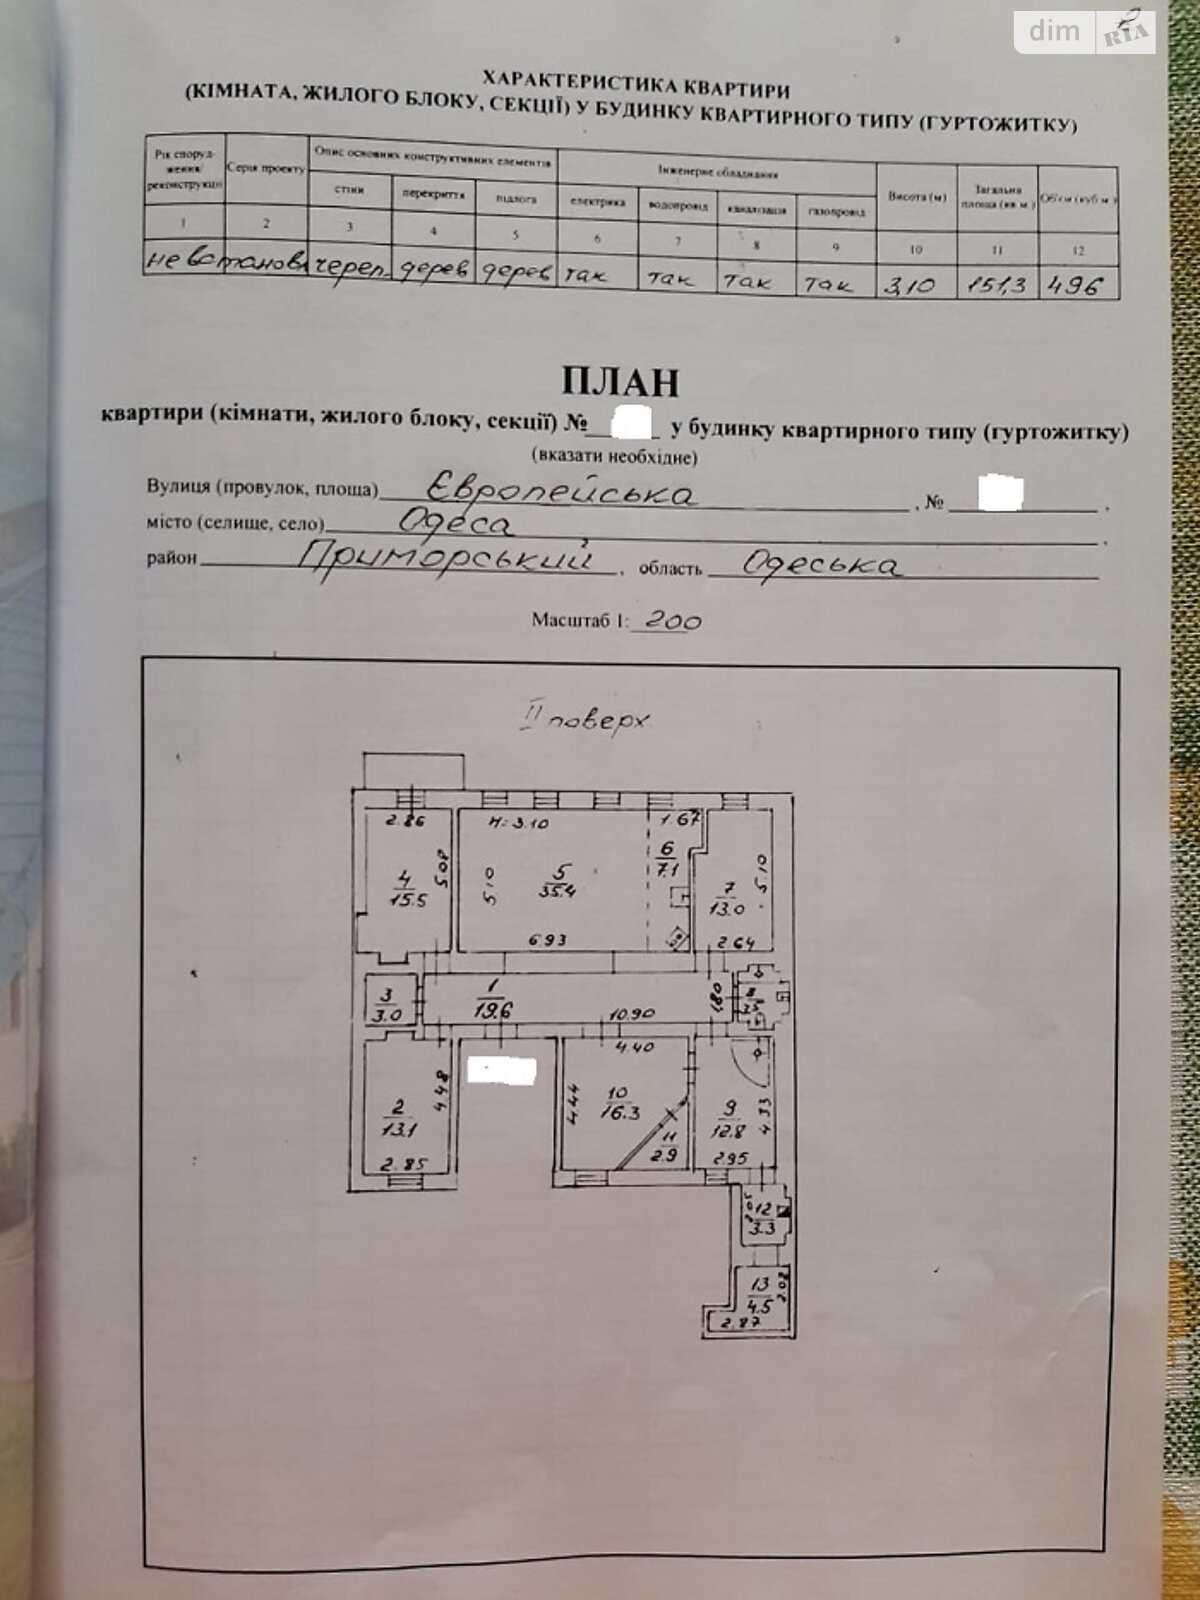 dim RIA
ХАРАКТЕРИСТИКА КВАРТИРИ
(КІМНАТА, ЖИЛОГО БЛОКУ, СЕКЦІЇ) У БУДИНКУ КВАРТИРНОГО ТИПУ (ГУРТОЖИТКУ)
Рік споруд-
ження/
реконструкції
Серія проекту
Опис основних конструктивних елементів
Інженерне обладнання
Висота (м)
Загальна
площа (кв.м.)
Об'єм (куб.м.)
стіни перекриття підлога електрика водопровід каналізація газопровід
1 2 3 4 5 6 7 8 9 10 11 12
не встановл череп. дерев дерев так так так так 3,10 151,3 496
ПЛАН
квартири (кімнати, жилого блоку, секції) № у будинку квартирного типу (гуртожитку)
(вказати необхідне)
Вулиця (провулок, площа) Європейська , № ,
місто (селище, село) Одеса ,
район Приморський , область Одеська
Масштаб 1: 200
II поверх
2.86 H=3.10 1.67
4
15.5
5.08
5.10
5
35.4
6
7.1
7
13.0
5.10
6.93 2.64
3
3.0
1
19.6
10.90
1.80
8
3.5
4.40
2
13.1
4.48
2.85
4.44
10
16.3
11
2.9
9
12.8
4.33
2.95
2.05
12
3.3
13
4.5
2.08
2.87